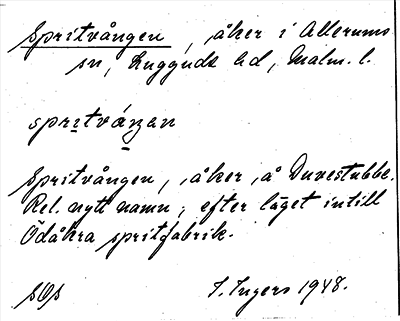 Spritvången, åker i Allerums
sn, Luggude hd, Malm. l.
sprɪtváŋən
Spritvången, åker, å Duvestubbe.
Rel. nytt namn, efter läget intill
Ödåkra spritfabrik.
SOs
I. Ingers 1948.